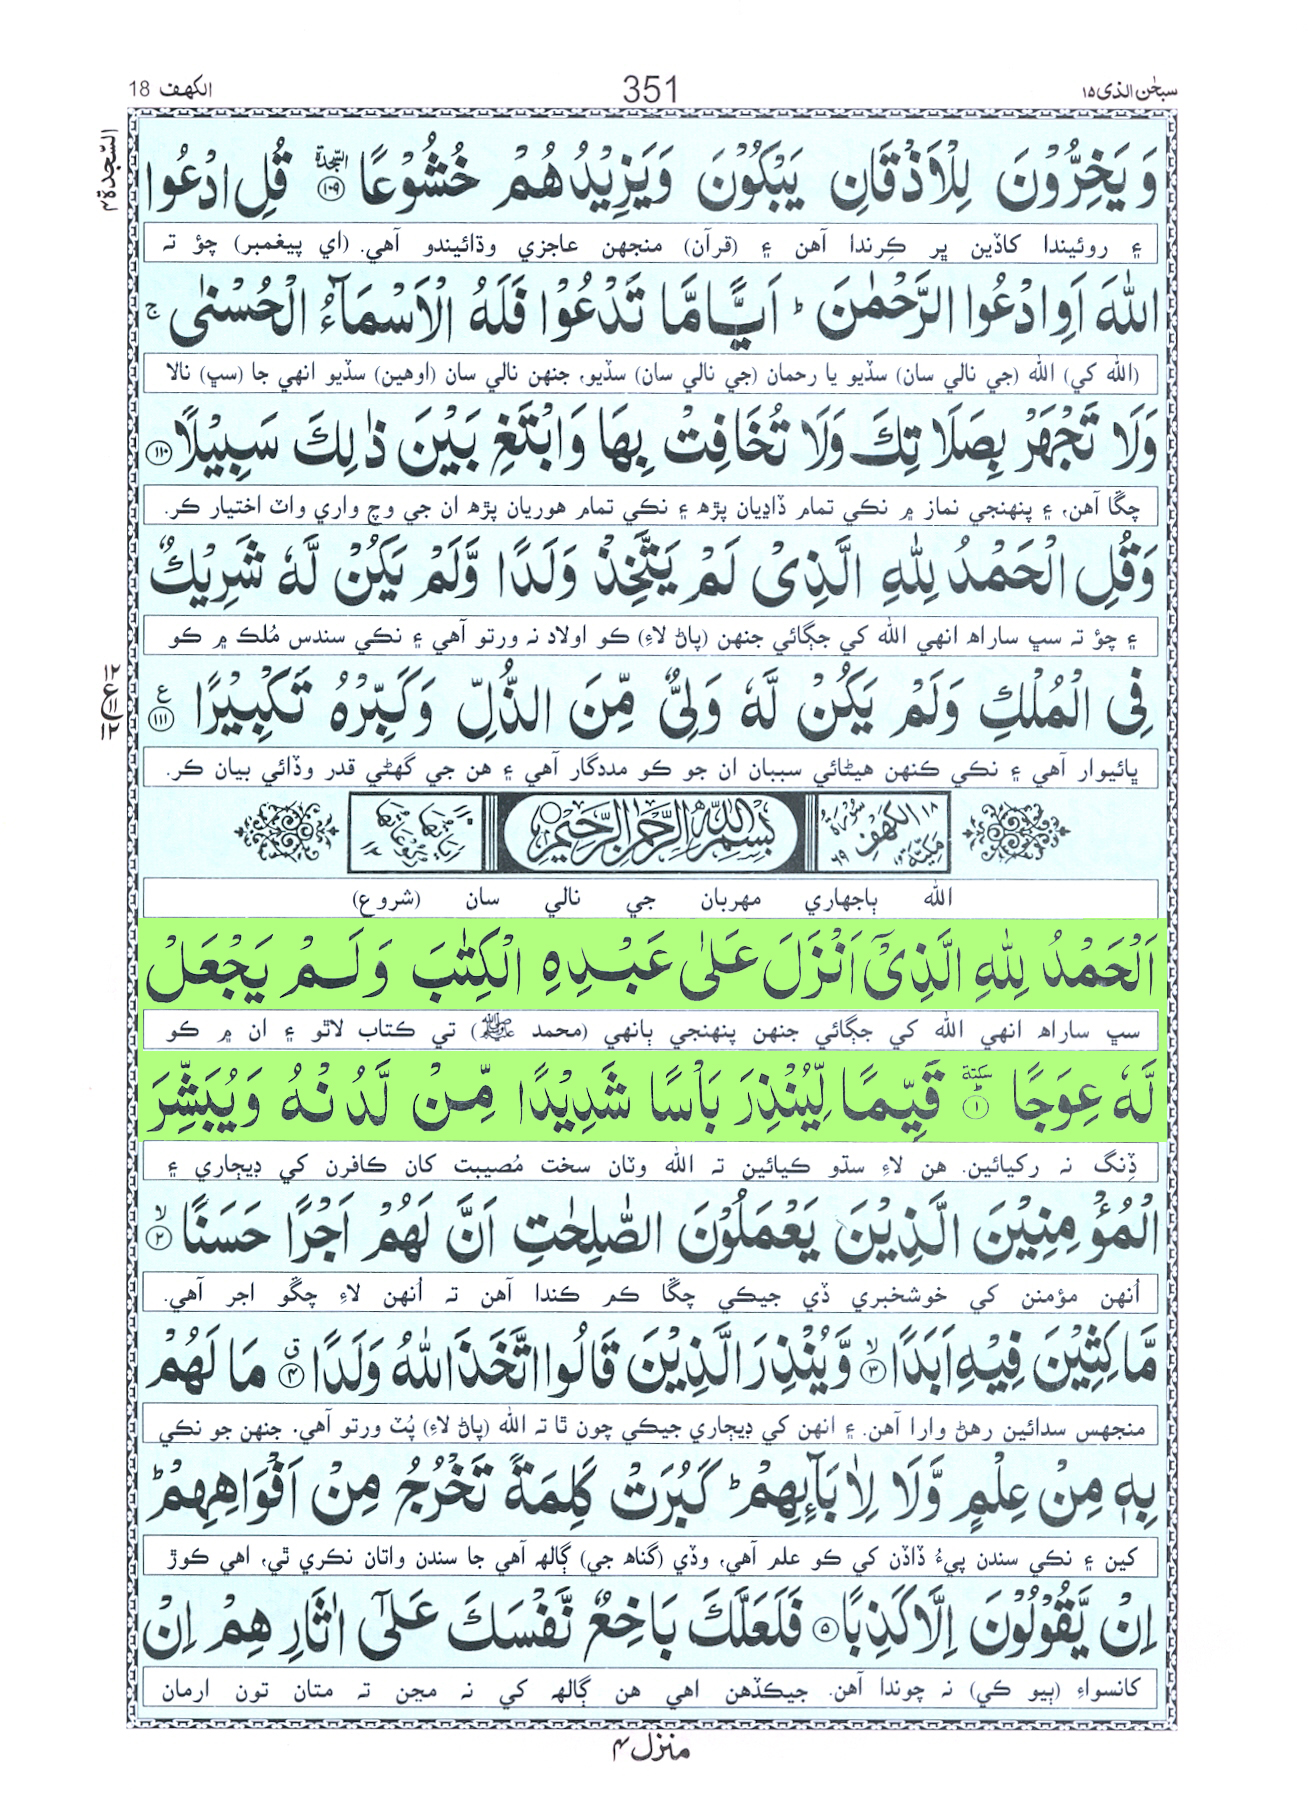 سبحٰن الذی ۱۵
351
الكهف 18
وَيَخِرُّوْنَ لِلْاَذْقَانِ يَبْكُوْنَ وَيَزِيْدُهُمْ خُشُوْعًا ۩ السجدة ﴿۱۰۹﴾ قُلِ ادْعُوا
السّجدة ۴
۽ روئيندا کاڏين ڀر ڪِرندا آهن ۽ (قرآن) منجھن عاجزي وڌائيندو آهي. (اي پيغمبر) چؤ تہ
اللّٰهَ اَوِ ادْعُوا الرَّحْمٰنَ ؕ اَيًّا مَّا تَدْعُوْا فَلَهُ الْاَسْمَآءُ الْحُسْنٰى ۚ
(الله کي) الله (جي نالي سان) سڏيو يا رحمان (جي نالي سان) سڏيو، جنھن نالي سان (اوھين) سڏيو انھي جا (سڀ) نالا
وَلَا تَجْهَرْ بِصَلَاتِكَ وَلَا تُخَافِتْ بِهَا وَابْتَغِ بَيْنَ ذٰلِكَ سَبِيْلًا ﴿۱۱۰﴾
چڱا آهن، ۽ پنھنجي نماز ۾ نڪي تمام ڏاڍيان پڙھ ۽ نڪي تمام ھوريان پڙھ ان جي وچ واري واٽ اختيار ڪر.
وَقُلِ الْحَمْدُ لِلّٰهِ الَّذِىْ لَمْ يَتَّخِذْ وَلَدًا وَّلَمْ يَكُنْ لَّهٗ شَرِيْكٌ
۽ چؤ تہ سڀ ساراھ انھي الله کي جڳائي جنھن (پاڻ لاءِ) ڪو اولاد نہ ورتو آهي ۽ نڪي سندس مُلڪ ۾ ڪو
فِى الْمُلْكِ وَلَمْ يَكُنْ لَّهٗ وَلِىٌّ مِّنَ الذُّلِّ وَكَبِّرْهُ تَكْبِيْرًا ﴿۱۱۱﴾ ع
۱۲ ع ۱۱ ۱۲
ڀائيوار آهي ۽ نڪي ڪنھن ھيڻائي سببان ان جو ڪو مددگار آهي ۽ ھن جي گھڻي قدر وڏائي بيان ڪر.
۱۸ سُوْرَةُ الْكَهْفِ مَكِّيَّةٌ ۶۹ بِسْمِ اللّٰهِ الرَّحْمٰنِ الرَّحِيْمِ اٰيَاتُهَا ۱۱۰ رُكُوْعَاتُهَا ۱۲
الله ٻاجھاري مھربان جي نالي سان (شروع)
اَلْحَمْدُ لِلّٰهِ الَّذِىْٓ اَنْزَلَ عَلٰى عَبْدِهِ الْكِتٰبَ وَلَمْ يَجْعَلْ
سڀ ساراھ انھي الله کي جڳائي جنھن پنھنجي ٻانھي (محمد ﷺ) تي ڪتاب لاٿو ۽ ان ۾ ڪو
لَّهٗ عِوَجًا سكتة ﴿۱﴾ قَيِّمًا لِّيُنْذِرَ بَاْسًا شَدِيْدًا مِّنْ لَّدُنْهُ وَيُبَشِّرَ
ڏِنگ نہ رکيائين. ھن لاءِ سڌو ڪيائين تہ الله وٽان سخت مُصيبت کان ڪافرن کي ڊيڄاري ۽
الْمُؤْمِنِيْنَ الَّذِيْنَ يَعْمَلُوْنَ الصّٰلِحٰتِ اَنَّ لَهُمْ اَجْرًا حَسَنًا ۙ ﴿۲﴾
اُنھن مؤمنن کي خوشخبري ڏي جيڪي چڱا ڪم ڪندا آهن تہ اُنھن لاءِ چڱو اجر آهي.
مَّاكِثِيْنَ فِيْهِ اَبَدًا ۙ ﴿۳﴾ وَّيُنْذِرَ الَّذِيْنَ قَالُوا اتَّخَذَ اللّٰهُ وَلَدًا ۗ ﴿۴﴾ مَا لَهُمْ
منجھس سدائين رھڻ وارا آهن. ۽ انھن کي ڊيڄاري جيڪي چون ٿا تہ الله (پاڻ لاءِ) پُٽ ورتو آهي. جنھن جو نڪي
بِهٖ مِنْ عِلْمٍ وَّلَا لِاٰبَآئِهِمْ ؕ كَبُرَتْ كَلِمَةً تَخْرُجُ مِنْ اَفْوَاهِهِمْ ؕ
کين ۽ نڪي سندن پيءُ ڏاڏن کي ڪو علم آهي، وڏي (گناھ جي) ڳالھ آهي جا سندن واتان نڪري ٿي، اھي ڪوڙ
اِنْ يَّقُوْلُوْنَ اِلَّا كَذِبًا ﴿۵﴾ فَلَعَلَّكَ بَاخِعٌ نَّفْسَكَ عَلٰٓى اٰثَارِهِمْ اِنْ
کانسواءِ (ٻيو ڪي) نہ چوندا آهن. جيڪڏھن اھي ھن ڳالھ کي نہ مڃن تہ متان تون ارمان
منزل ۴